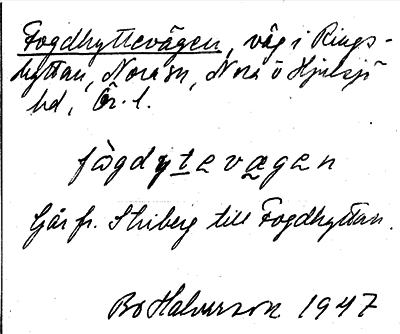 Fogdhyttevägen, väg i Rings-
hyttan, Nora sn, Nora o Hjulsjö
hd, Ör. l.
fògdy̱tevægen
Går fr. Striberg till Fogdhyttan.
Bo Halvarson 1947